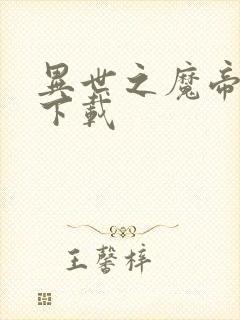 異世之魔帝
下載
王馨梓